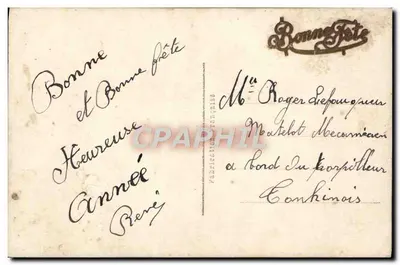 Bonne
et Bonne fête
Heureuse
année
René
Bonne Fête
Fabrication Française
CPAPHIL
Mr Roger
Matelot Mecanicien
a bord du torpilleur
Tonkinois